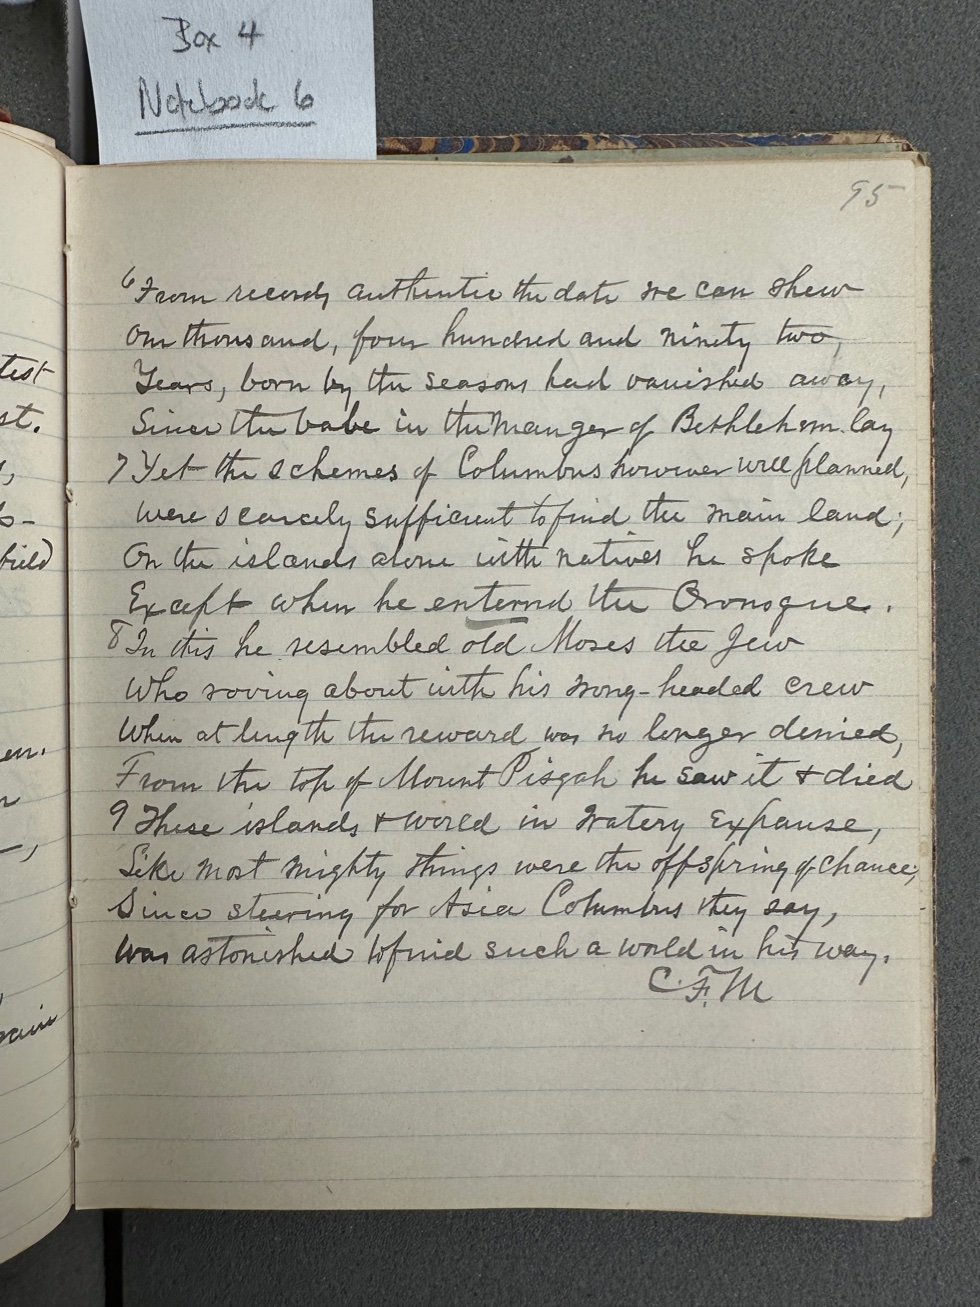 Box 4
Notebook 6
95
6 From records authentic the date we can shew
One thousand, four hundred and ninety two,
Years, born by the seasons had vanished away,
Since the babe in the Manger of Bethlehem lay
7 Yet the schemes of Columbus however well planned,
Were scarcely sufficient to find the main land;
On the islands alone with natives he spoke
Except when he enterned the Oronoque.
8 In this he resembled old Moses the Jew
Who roving about with his wrong-headed crew
When at length the reward was no longer denied,
From the top of Mount Pisgah he saw it & died
9 These islands & world in watery Expanse,
Like most mighty things were the offspring of chance,
Since steering for Asia Columbus they say,
Was astonished to find such a world in his way.
C. F. M
test
st.
field